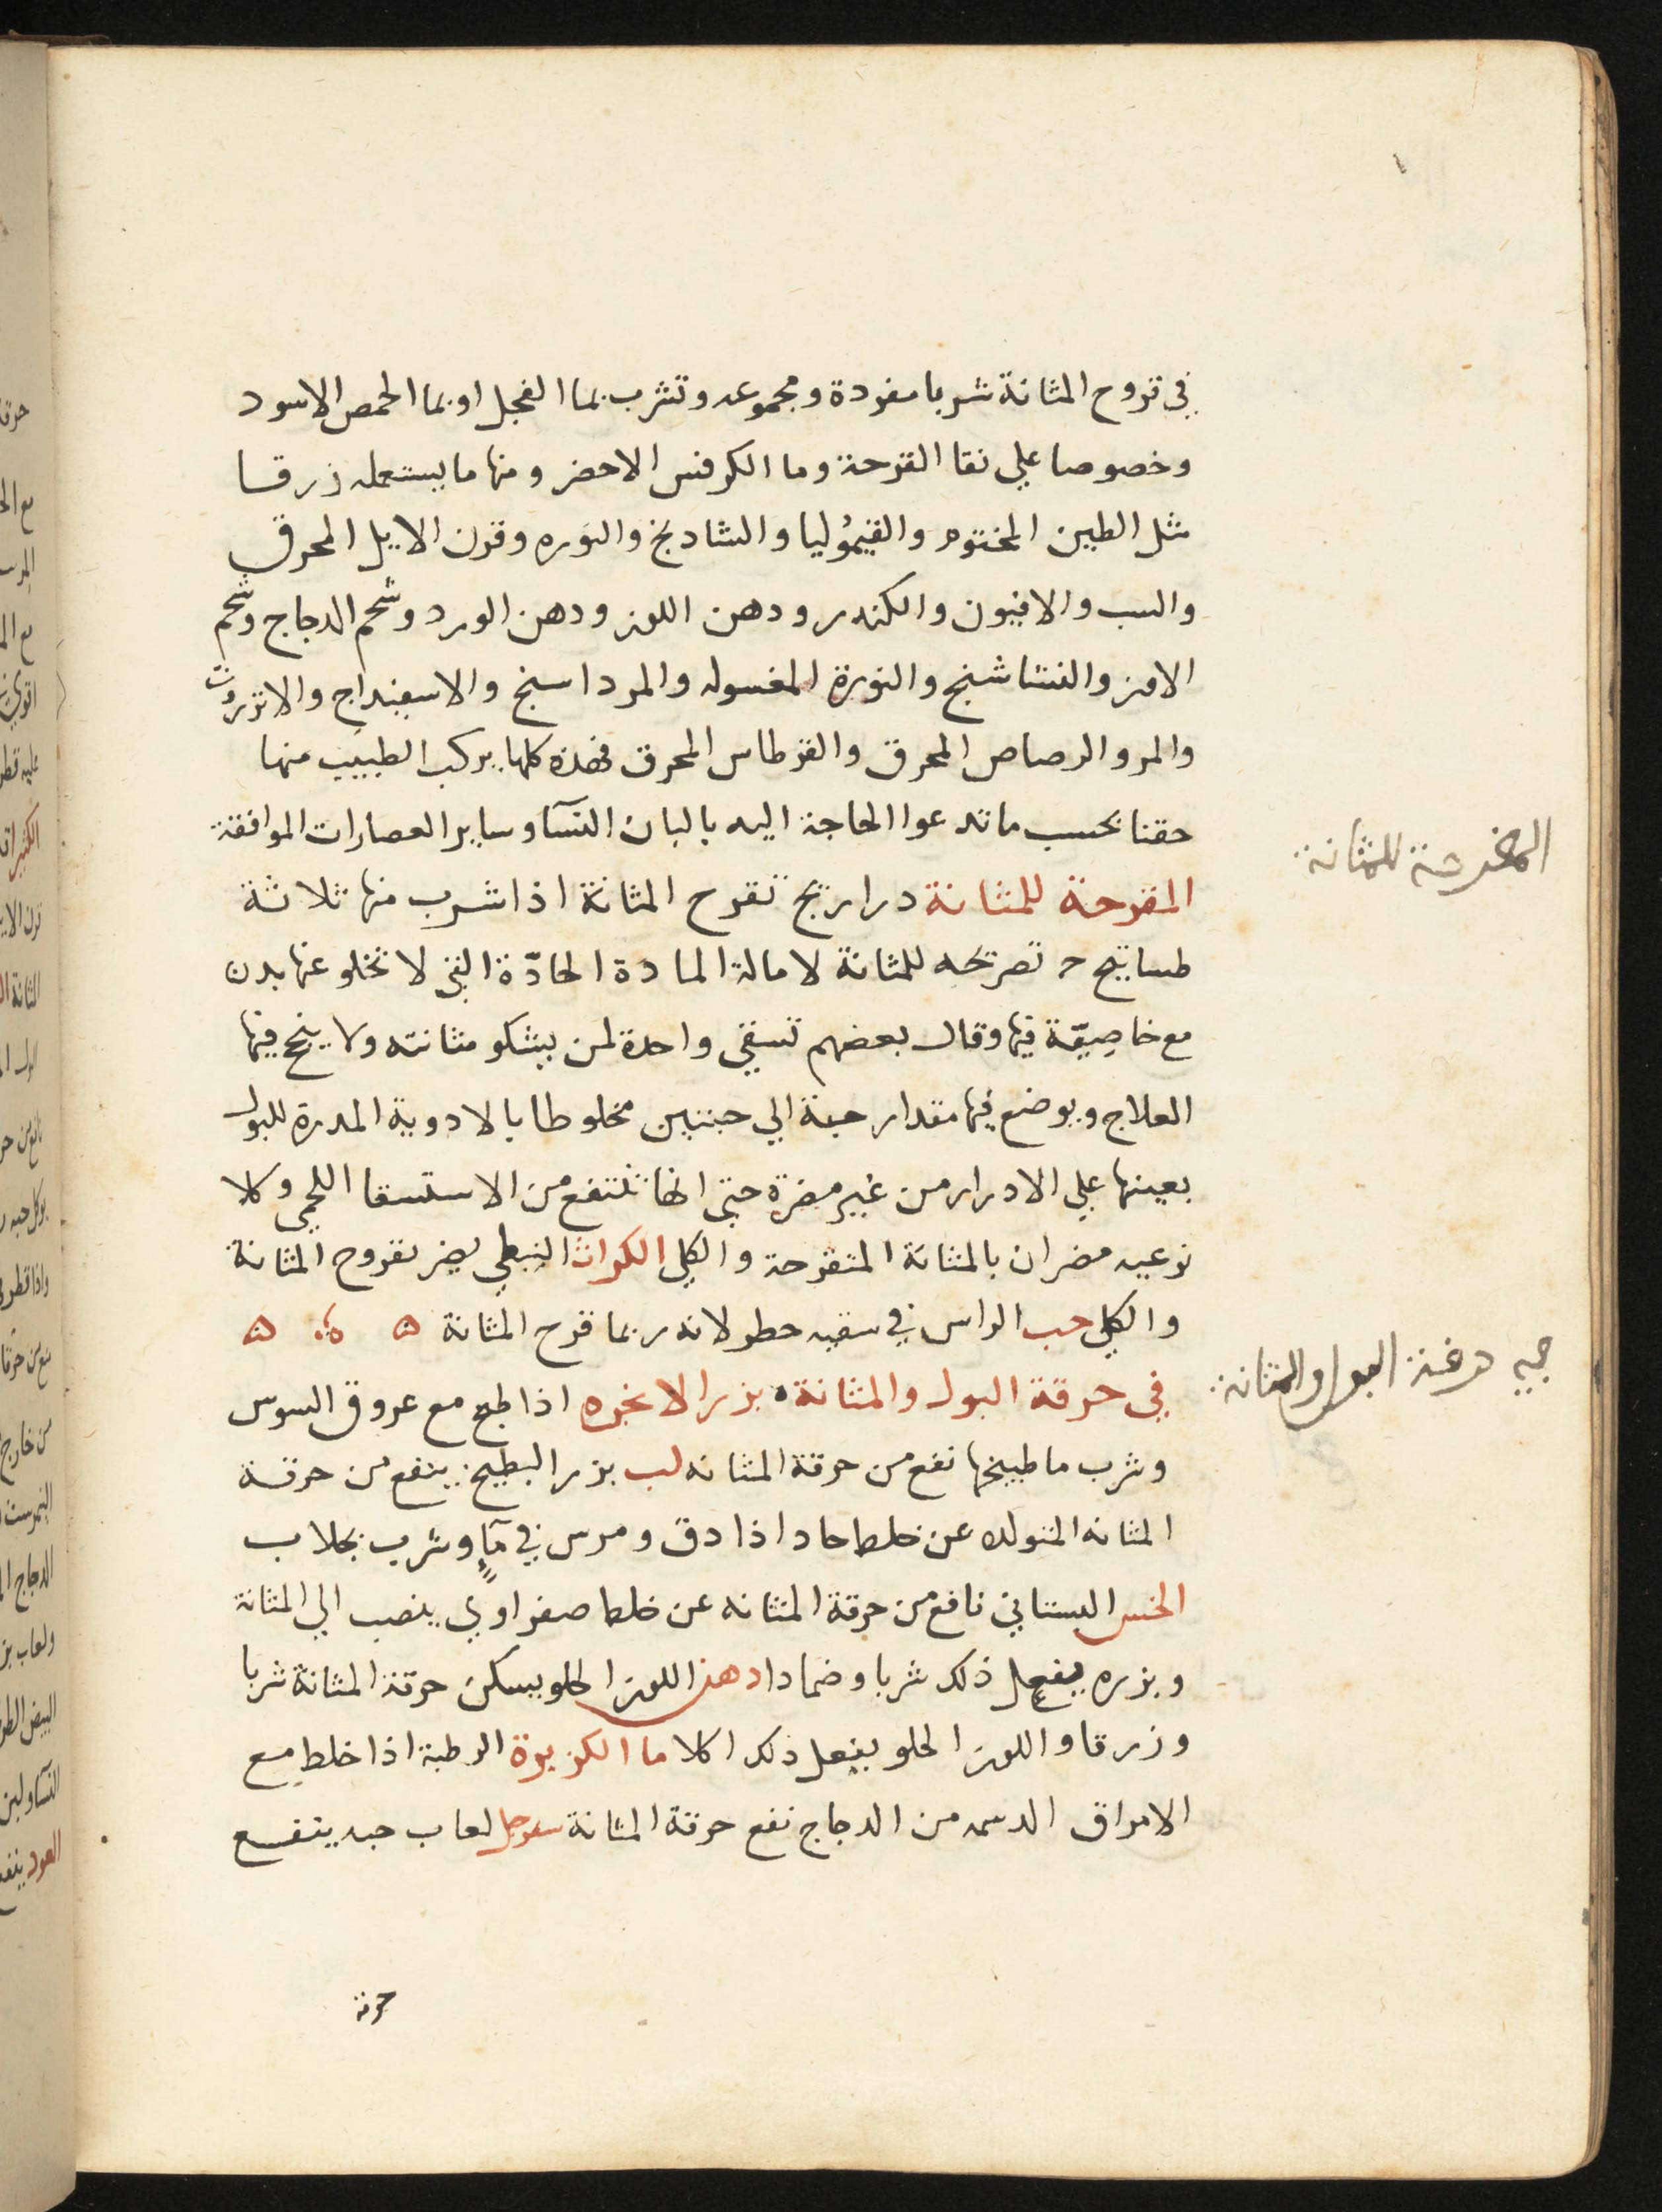 في قروح المثانة شربا مفردة ومجموعه وتشرب بما الفجل او بما الحمص الاسود
وخصوصا علي نقا القرحة وما الكرفس الاخضر ومنها ما يستعمله زرقا
مثل الطين المختوم والقيمُوليا والشادنج والنوره وقرن الايل المحرق
والشب والافيون والكندر ودهن اللوز ودهن الورد وشحم الدجاج وشحم
الاوز والنشاشنج والنورة المغسوله والمرداسنج والاسفيداج والانزروت
والمر والرصاص المحرق والقرطاس المحرق فهذه كلها يركب الطبيب منها
حقنا بحسب ما تدعوا الحاجة اليه بالبان النسآ وساير العصارات الموافقة
المقرحة للمثانة
المقرحة للمثانة دراريح تقرح المثانة اذا شرب منها ثلاثة
طساتيج تقريحه للمثانة لامالة المادة الحادّة التي لا تخلو عنها بدن
مع خاصِيّة فيها وقال بعضهم تسقي واحدة لمن يشكو مثانته ولا ينجح فيها
العلاج ويوضع فيها مقدار حبة الي حبتين مخلوطا بالادوية المدرة للبول
يعينها علي الادرار من غير مضرة حتي انها تنتفع من الاستسقا اللحمي وكلا
نوعيه مضران بالمثانة المتقرحة والكلي الكراث النبطي يضر بقروح المثانة
والكلي حب الراس في سقيه خطر لانه ربما قرح المثانة
في حرقة البول والمثانة
في حرقة البول والمثانة بزر الانجره اذا طبخ مع عروق السوس
وشرب ما طبيخها نفع من حرقة المثانه لب بزر البطيخ ينفع من حرقة
المثانه المتولد عن خلط حاد اذا دق ومرس في مآٍ وشرب بجلاب
الخس البستاني نافع من حرقة المثانه عن خلط صفراوي ينصب الي المثانة
وبزره يفعل ذلك شربا وضمادا دهن اللوز الحلو يسكن حرقة المثانة شربا
وزرقا واللوز الحلو يفعل ذلك اكلا ما الكزبرة الرطبة اذا خلط مع
الامراق الدسمه من الدجاج نفع حرقة المثانة سفرجل لعاب حبه ينفع
حرقة